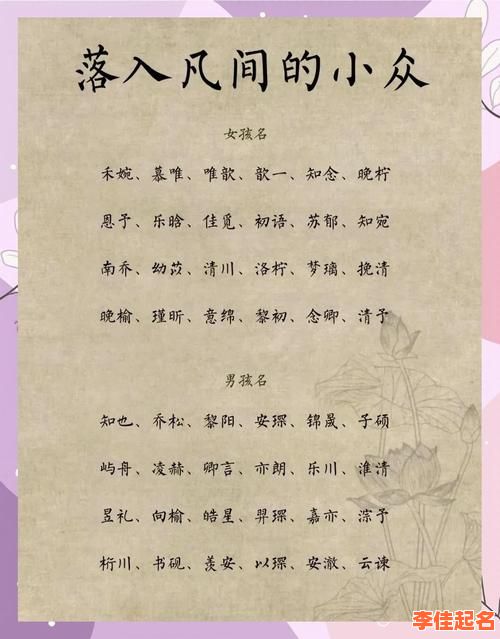 落入凡间的小众
女孩名
禾婉、慕唯、唯歆、歆一、知念、晚柠
恩予、乐晗、佳觅、初语、苏郁、知宛
南乔、幼苡、清川、洛柠、梦璃、挽清
晚榆、瑾昕、意绵、黎初、念卿、清予
男孩名
知也、乔松、黎阳、安琛、锦晟、子硕
屿舟、凌赫、卿言、亦朗、乐川、淮清
昱礼、向榆、皓星、羿琛、嘉亦、淙予
桁川、书砚、羡安、以琛、安澈、云谏
李佳起名